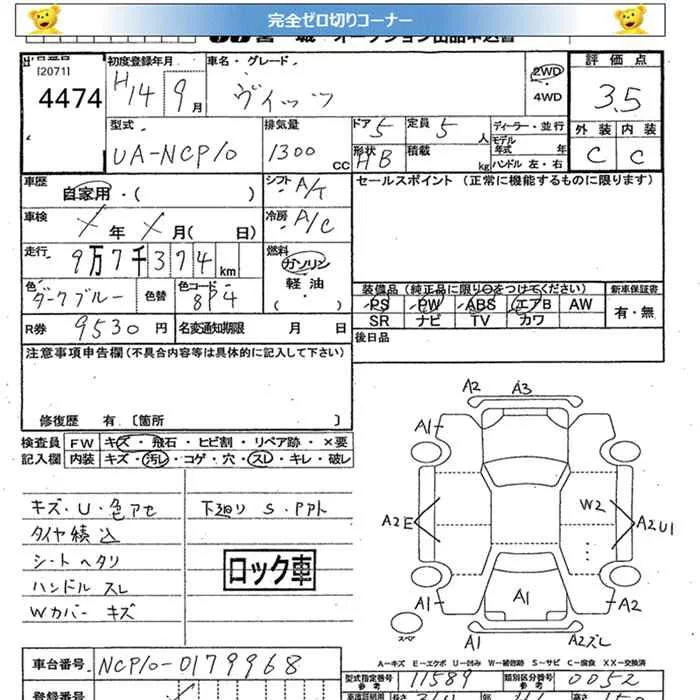 完全ゼロ切りコーナー
[2071]
4474
初度登録年月
H14 9月
車名・グレード
ヴィッツ
2WD
4WD
評価点
3.5
型式
UA-NCP10
排気量
1300 CC
ドア 5
定員 5 人
形状 HB
積載 kg
ディーラー・並行
モデル年式 年
ハンドル 左・右
外装 内装
C C
車歴
自家用・( )
シフト A/T
セールスポイント (正常に機能するものに限ります)
車検
年 月( 日)
冷房 A/C
走行
9万7千374km
燃料
ガソリン
軽油
( )
色
ダークブルー
色替
色コード
8P4
装備品 (純正品に限り○をつけてください)
新車保証書
PS PW ABS エアB AW
SR ナビ TV カワ
有・無
R券 9530円
名変通知期限 月 日
後日品
注意事項申告欄(不具合内容等は具体的に記入して下さい)
修復歴 有〔箇所 〕
検査員
記入欄
FW キズ・飛石・ヒビ割・リペア跡・×要
内装 キズ・汚レ・コゲ・穴・スレ・キレ・破レ
キズ・U・色アセ
タイヤ積込
シートヘタリ
ハンドル スレ
Wカバー キズ
下廻り S・Pアト
ロック車
A2 A3
A1
W2
A2E
A2U1
A1
A1
A2
スペア
A1
A2ズレ
A−キズ E−エクボ U−凹み W−補修跡 S−サビ C−腐食 XX−交換済
車台番号 NCP10-0179968
型式指定番号 11589
類別区分番号 0052
登録番号